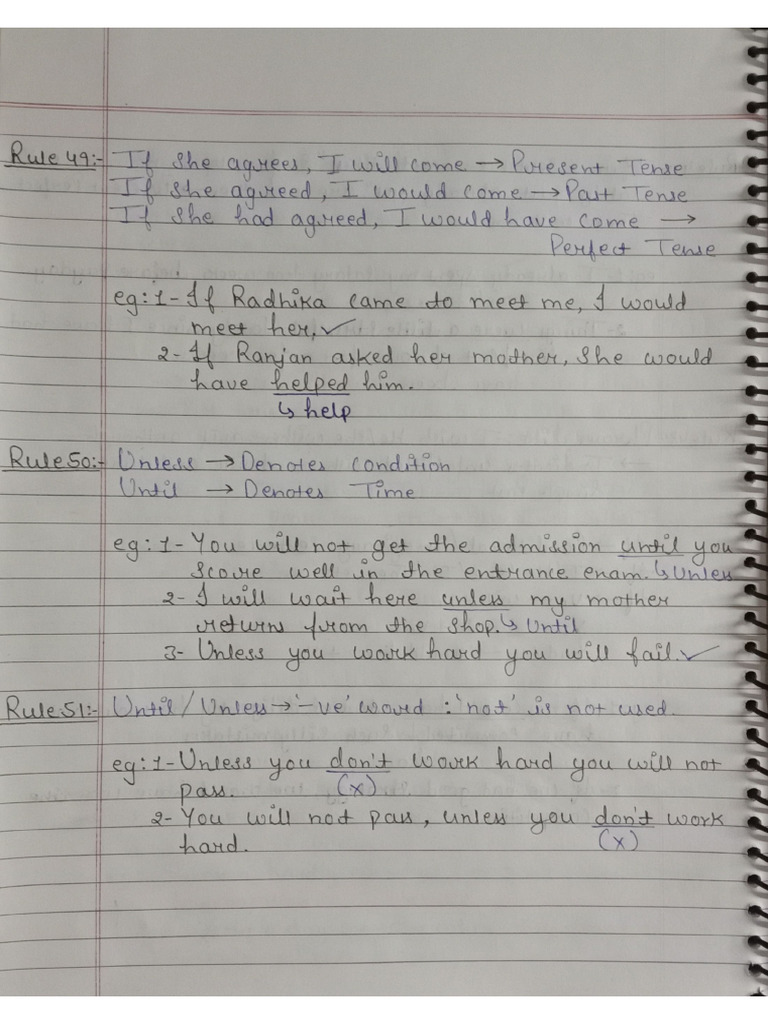 Rule 49:- If she agrees, I will come → Present Tense
If she agreed, I would come → Past Tense
If she had agreed, I would have come →
Perfect Tense
eg: 1- If Radhika came to meet me, I would
meet her. ✓
2- If Ranjan asked her mother, she would
have helped him.
↳ help
Rule 50:- Unless → Denotes condition
Until → Denotes Time
eg: 1- You will not get the admission until you
score well in the entrance enam. ↳ Unless
2- I will wait here unless my mother
return from the shop. ↳ Until
3- Unless you work hard you will fail. ✓
Rule 51:- Until / Unless → '-ve' word : 'not' is not used.
eg: 1- Unless you don't work hard you will not
pass. (x)
2- You will not pass, unless you don't work
hard. (x)